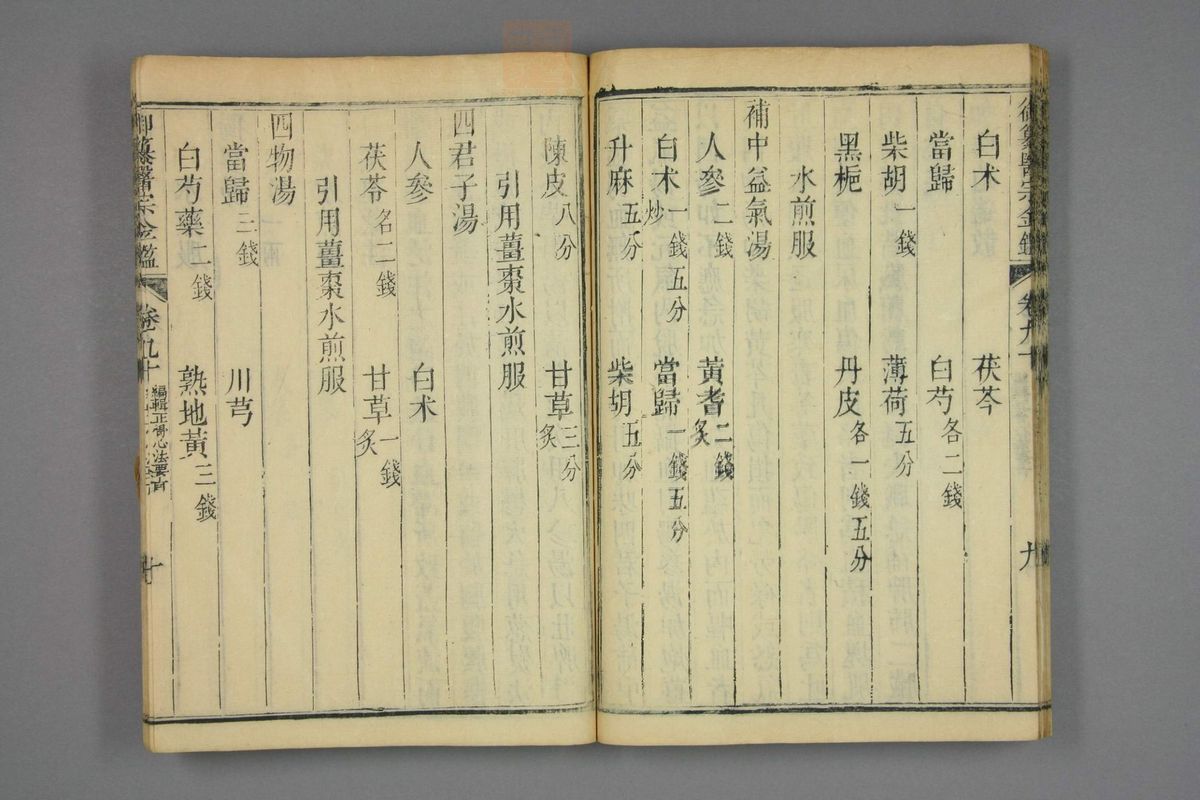 御纂醫宗金鑑 卷九十 九
白朮 茯苓
當歸 白芍各二錢
柴胡一錢 薄荷五分
黑梔 丹皮各一錢五分
水煎服
補中益氣湯
人參二錢 黃耆二錢炙
白朮一錢五分炒 當歸一錢五分
升麻五分 柴胡五分
陳皮八分 甘草三分炙
引用薑棗水煎服
四君子湯
人參 白朮
茯苓各二錢 甘草一錢炙
引用薑棗水煎服
四物湯
當歸三錢 川芎
白芍藥二錢 熟地黃三錢
御纂醫宗金鑑 卷九十 編輯正骨心法要旨 十